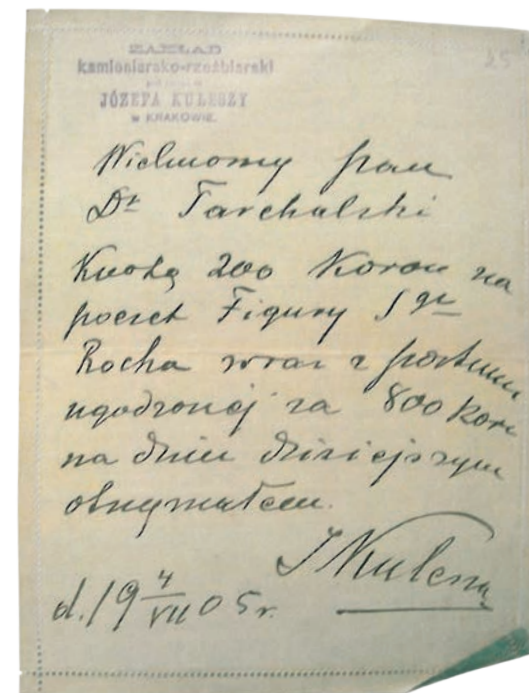 25
ZAKŁAD
kamieniarsko-rzeźbiarski
JÓZEFA KULESZY
w KRAKOWIE.
Wielmożny pan
Dr Tarchalski
Kwotę 200 Koron na
poczet Figury Sgo
Rocha wraz z
ugodzonej za 800 Koron
na dniu dzisiejszym
otrzymałem.
J Kulesza
d. 19 4/VII 05 r.